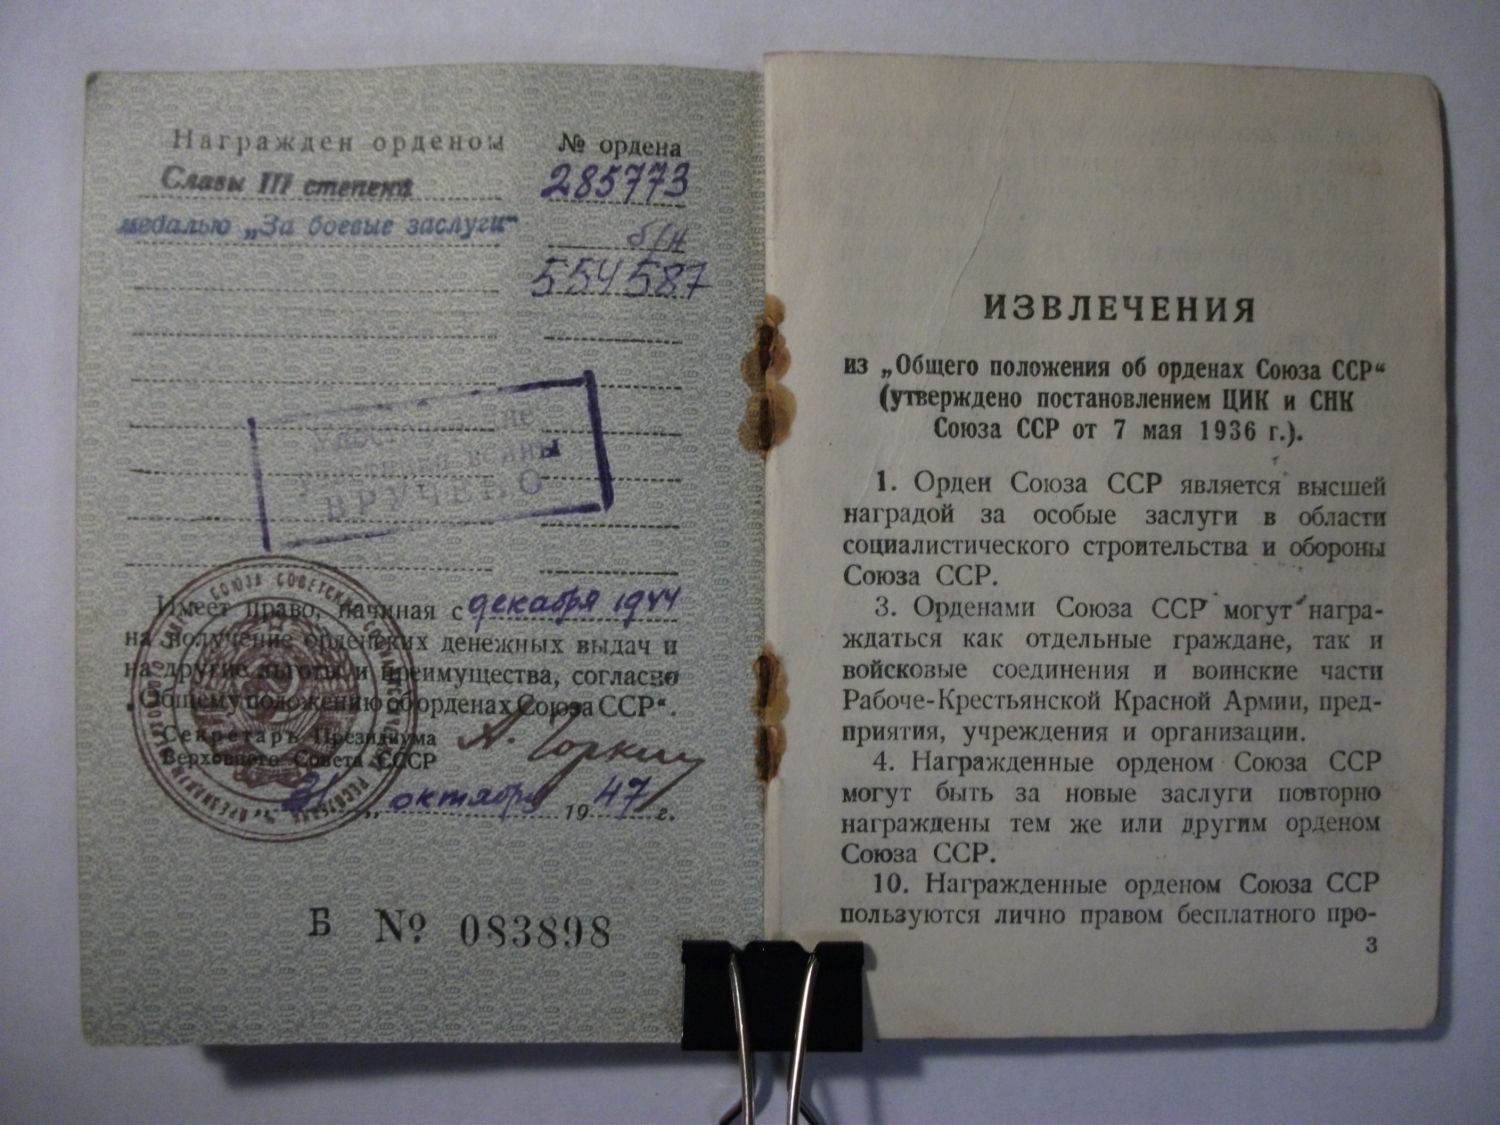 Награжден орденом № ордена
Славы III степени 285773
медалью „За боевые заслуги“ б/н
554587
Удостоверение
участника войны
ВРУЧЕНО
Имеет право, начиная с декабря 1944
на получение орденских денежных выдач и
на другие льготы и преимущества, согласно
„Общему положению об орденах Союза ССР“.
Секретарь Президиума
Верховного Совета СССР
А. Горкин
октября 1947 г.
Б № 083898
ИЗВЛЕЧЕНИЯ
из „Общего положения об орденах Союза ССР“
(утверждено постановлением ЦИК и СНК
Союза ССР от 7 мая 1936 г.).
1. Орден Союза ССР является высшей
наградой за особые заслуги в области
социалистического строительства и обороны
Союза ССР.
3. Орденами Союза ССР могут награ-
ждаться как отдельные граждане, так и
войсковые соединения и воинские части
Рабоче-Крестьянской Красной Армии, пред-
приятия, учреждения и организации.
4. Награжденные орденом Союза ССР
могут быть за новые заслуги повторно
награждены тем же или другим орденом
Союза ССР.
10. Награжденные орденом Союза ССР
пользуются лично правом бесплатного про-
3